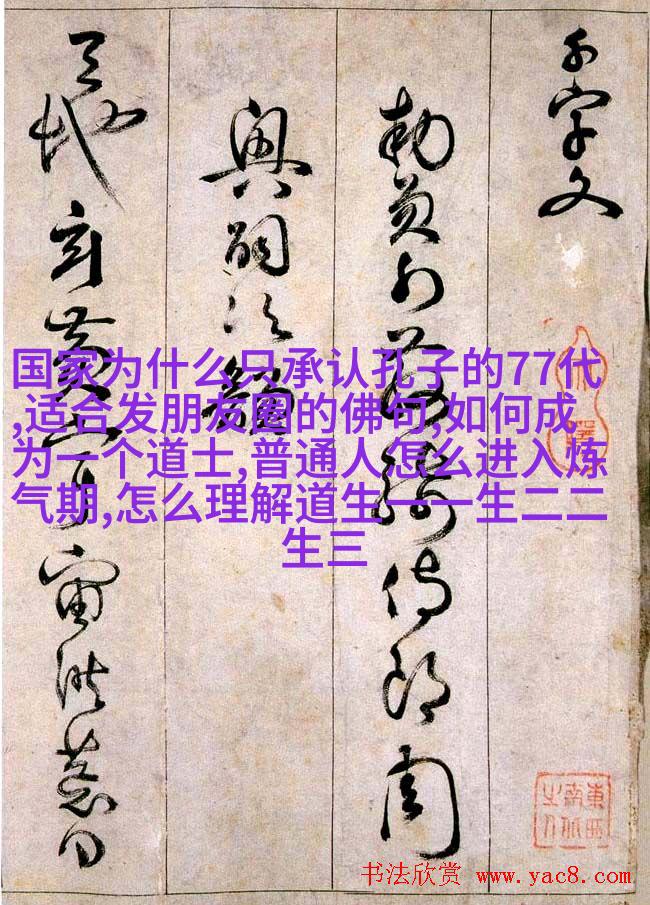 千字文
勅員外散騎侍郎周
興嗣次韻
天地玄黃宇宙洪荒日
国家为什么只承认孔子的77代
,适合发朋友圈的佛句,如何成
为一个道士,普通人怎么进入炼
气期,怎么理解道生一一生二二
生三
東西南北之人
书法欣赏 www.yac8.com